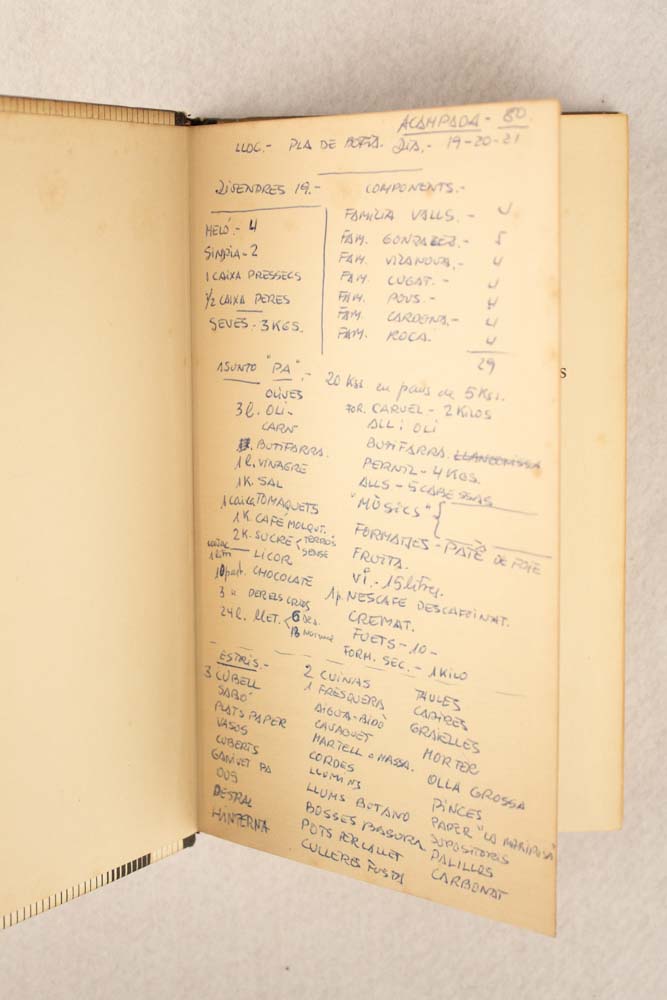 ACAMPADA - 80
LLOC.- PLA DE DIA.- 19-20-21
DIVENDRES 19.-
MELÓ.- 4
SINDIA - 2
1 CAIXA PRESSECS
1/2 CAIXA PERES
SEVES - 3 KGS.
COMPONENTS.-
FAMILIA VALLS.- 4
FAM. GONZALEZ.- 5
FAM. VILANOVA.- 4
FAM. LUGAT.- 4
FAM. POUS.- 4
FAM. CARDONA.- 4
FAM. ROCA. 4
29
ASUNTO "PA".- 20 Kgs en pans de 5 Kgs.
OLIVES
3 l. OLI -
CARN
BUTIFARRA.
1 l. VINAGRE
1 K. SAL
1 caixa TOMAQUETS
1 K. CAFÉ MOLGUT.
2 K. SUCRE < TERROS
SENSE
LICOR
10 past. CHOCOLATE
3
24 l. LLET. < 6 Des.
18 NORMAL
FOR. CARUEL - 2 KILOS
ALL i OLI
BUTIFARRA. LLANGONISSA
PERNIL - 4 KGS.
ALLS - 5 CABESSAS
"MÒSICS" {
FORMATJES - PATÉ DE FOIE
FRUITA.
VI.- 15 litres.
1 p. NESCAFE DESCAFEINAT.
CREMAT.
FUETS - 10 -
FORM. SEC. - 1 KILO
ESTRIS.-
3 CUBELL
SABÓ
PLATS PAPER
VASOS
CUBERTS
GANIVET PA
OUS
DESTRAL
LLINTERNA
2 CUINAS
1 FRESQUERA
AIGUA-BIDÓ
CAVAGUET
MARTELL o MASSA.
CORDES
LLUMINS
LLUMS BUTANO
BOSSES BASURA
POTS PER LLET
CULLERES FUSTA
TAULES
CADIRES
GRAELLES
MORTER
OLLA GROSSA
PINCES
PAPER "LA MARIPOSA"
SUPOSITORIS
PALILLOS
CARBONAT
S